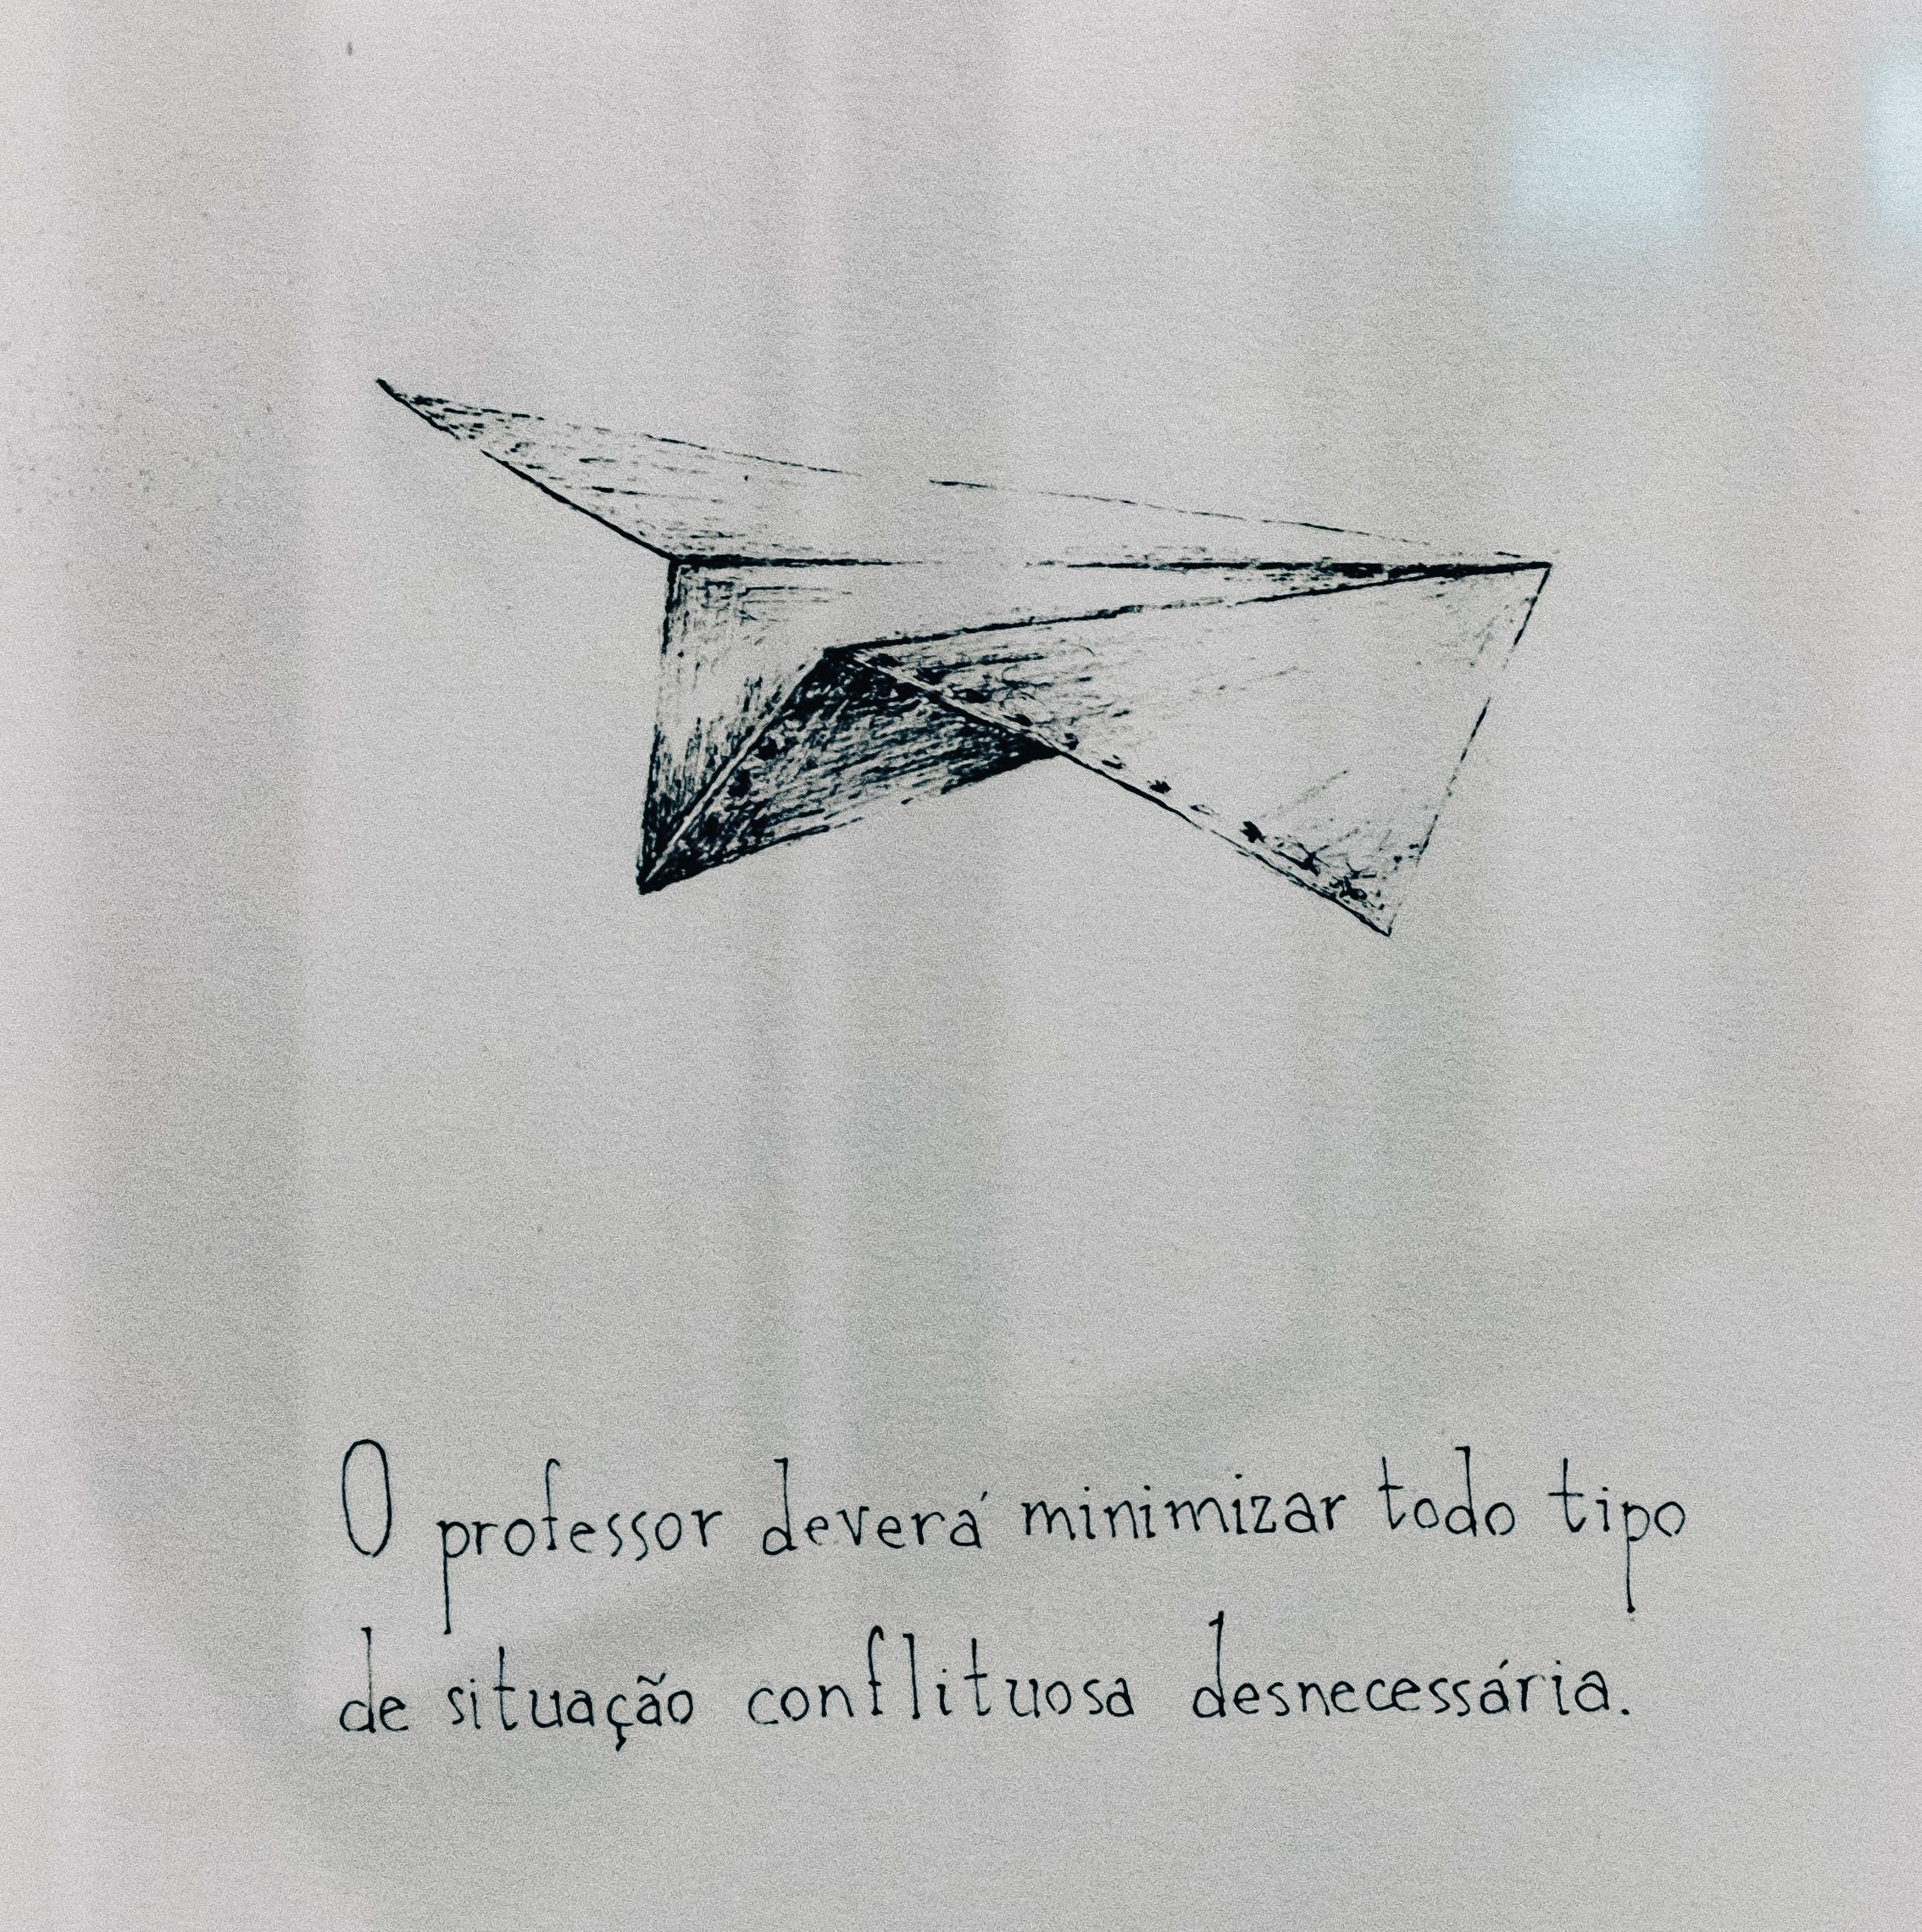 O professor deverá minimizar todo tipo
de situação conflituosa desnecessária.